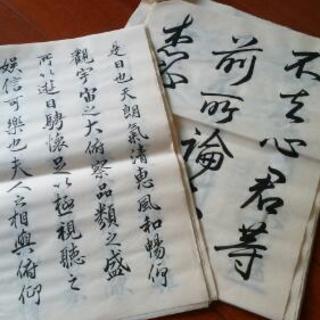 是日也天朗氣清惠風和暢仰
觀宇宙之大俯察品類之盛
所以遊目騁懷足以極視聽之
娛信可樂也夫人之相與俯仰
不具心君等
前所論